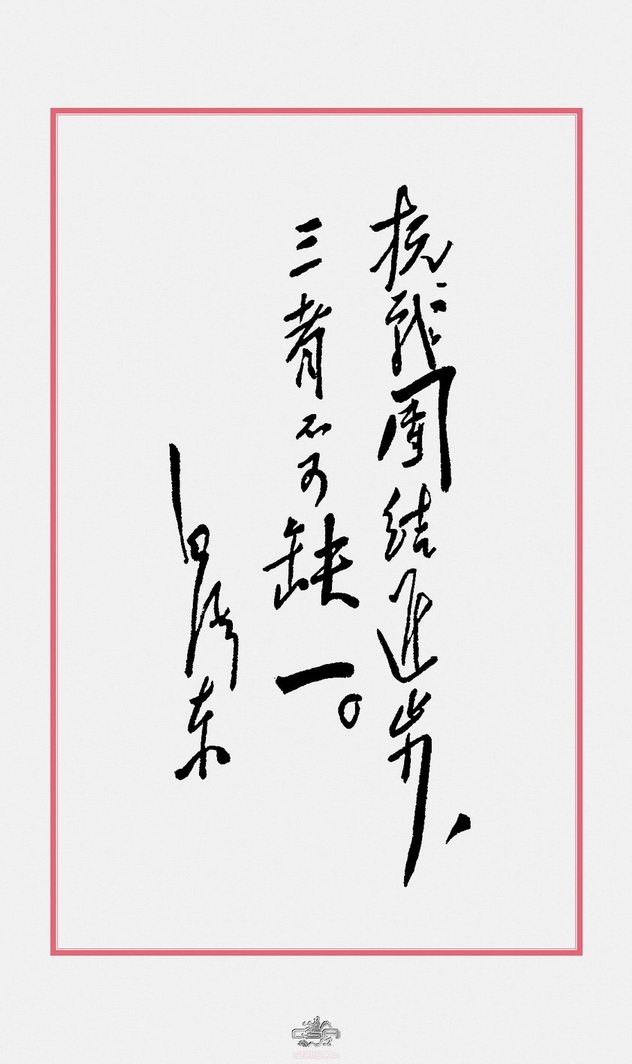 抗战團结进步，
三者不可缺一。
毛泽东